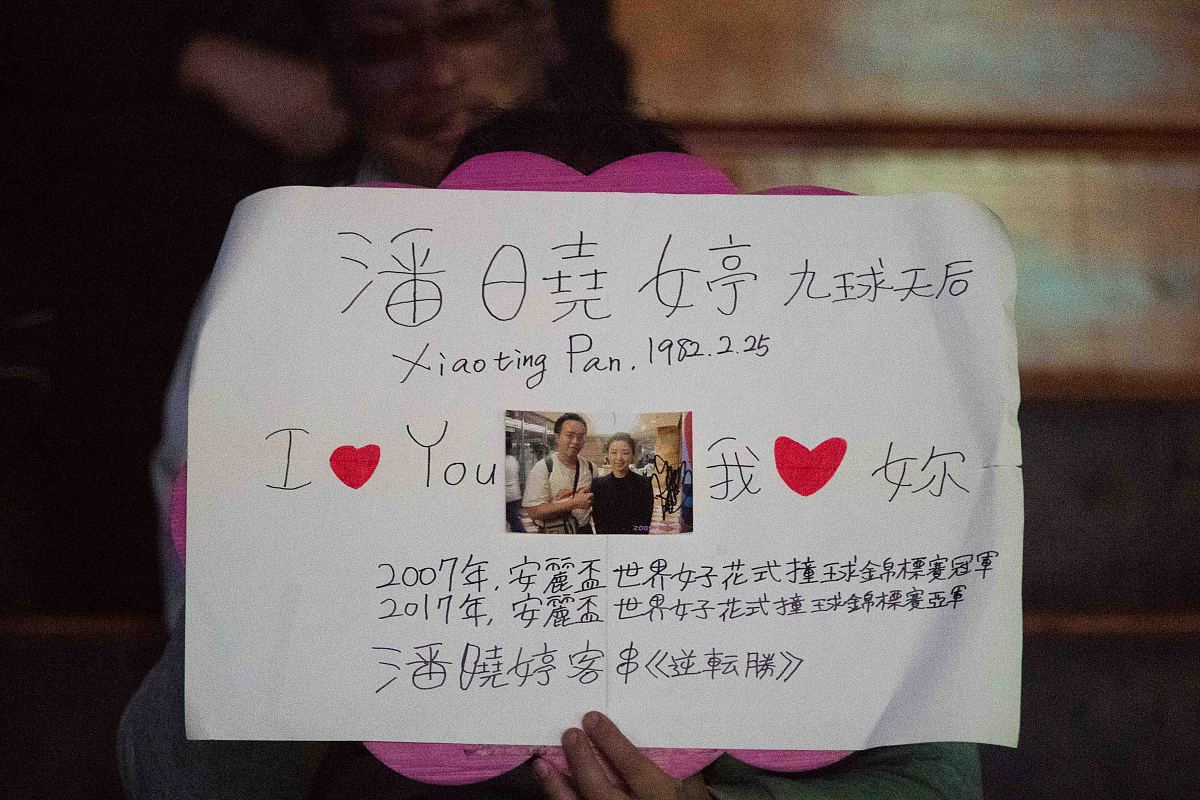 潘曉婷 九球天后
Xiaoting Pan. 1982.2.25
I ♥ You 我 ♥ 妳
2007年, 安麗盃 世界女子花式撞球錦標賽冠軍
2017年, 安麗盃 世界女子花式撞球錦標賽亞軍
潘曉婷客串《逆転勝》